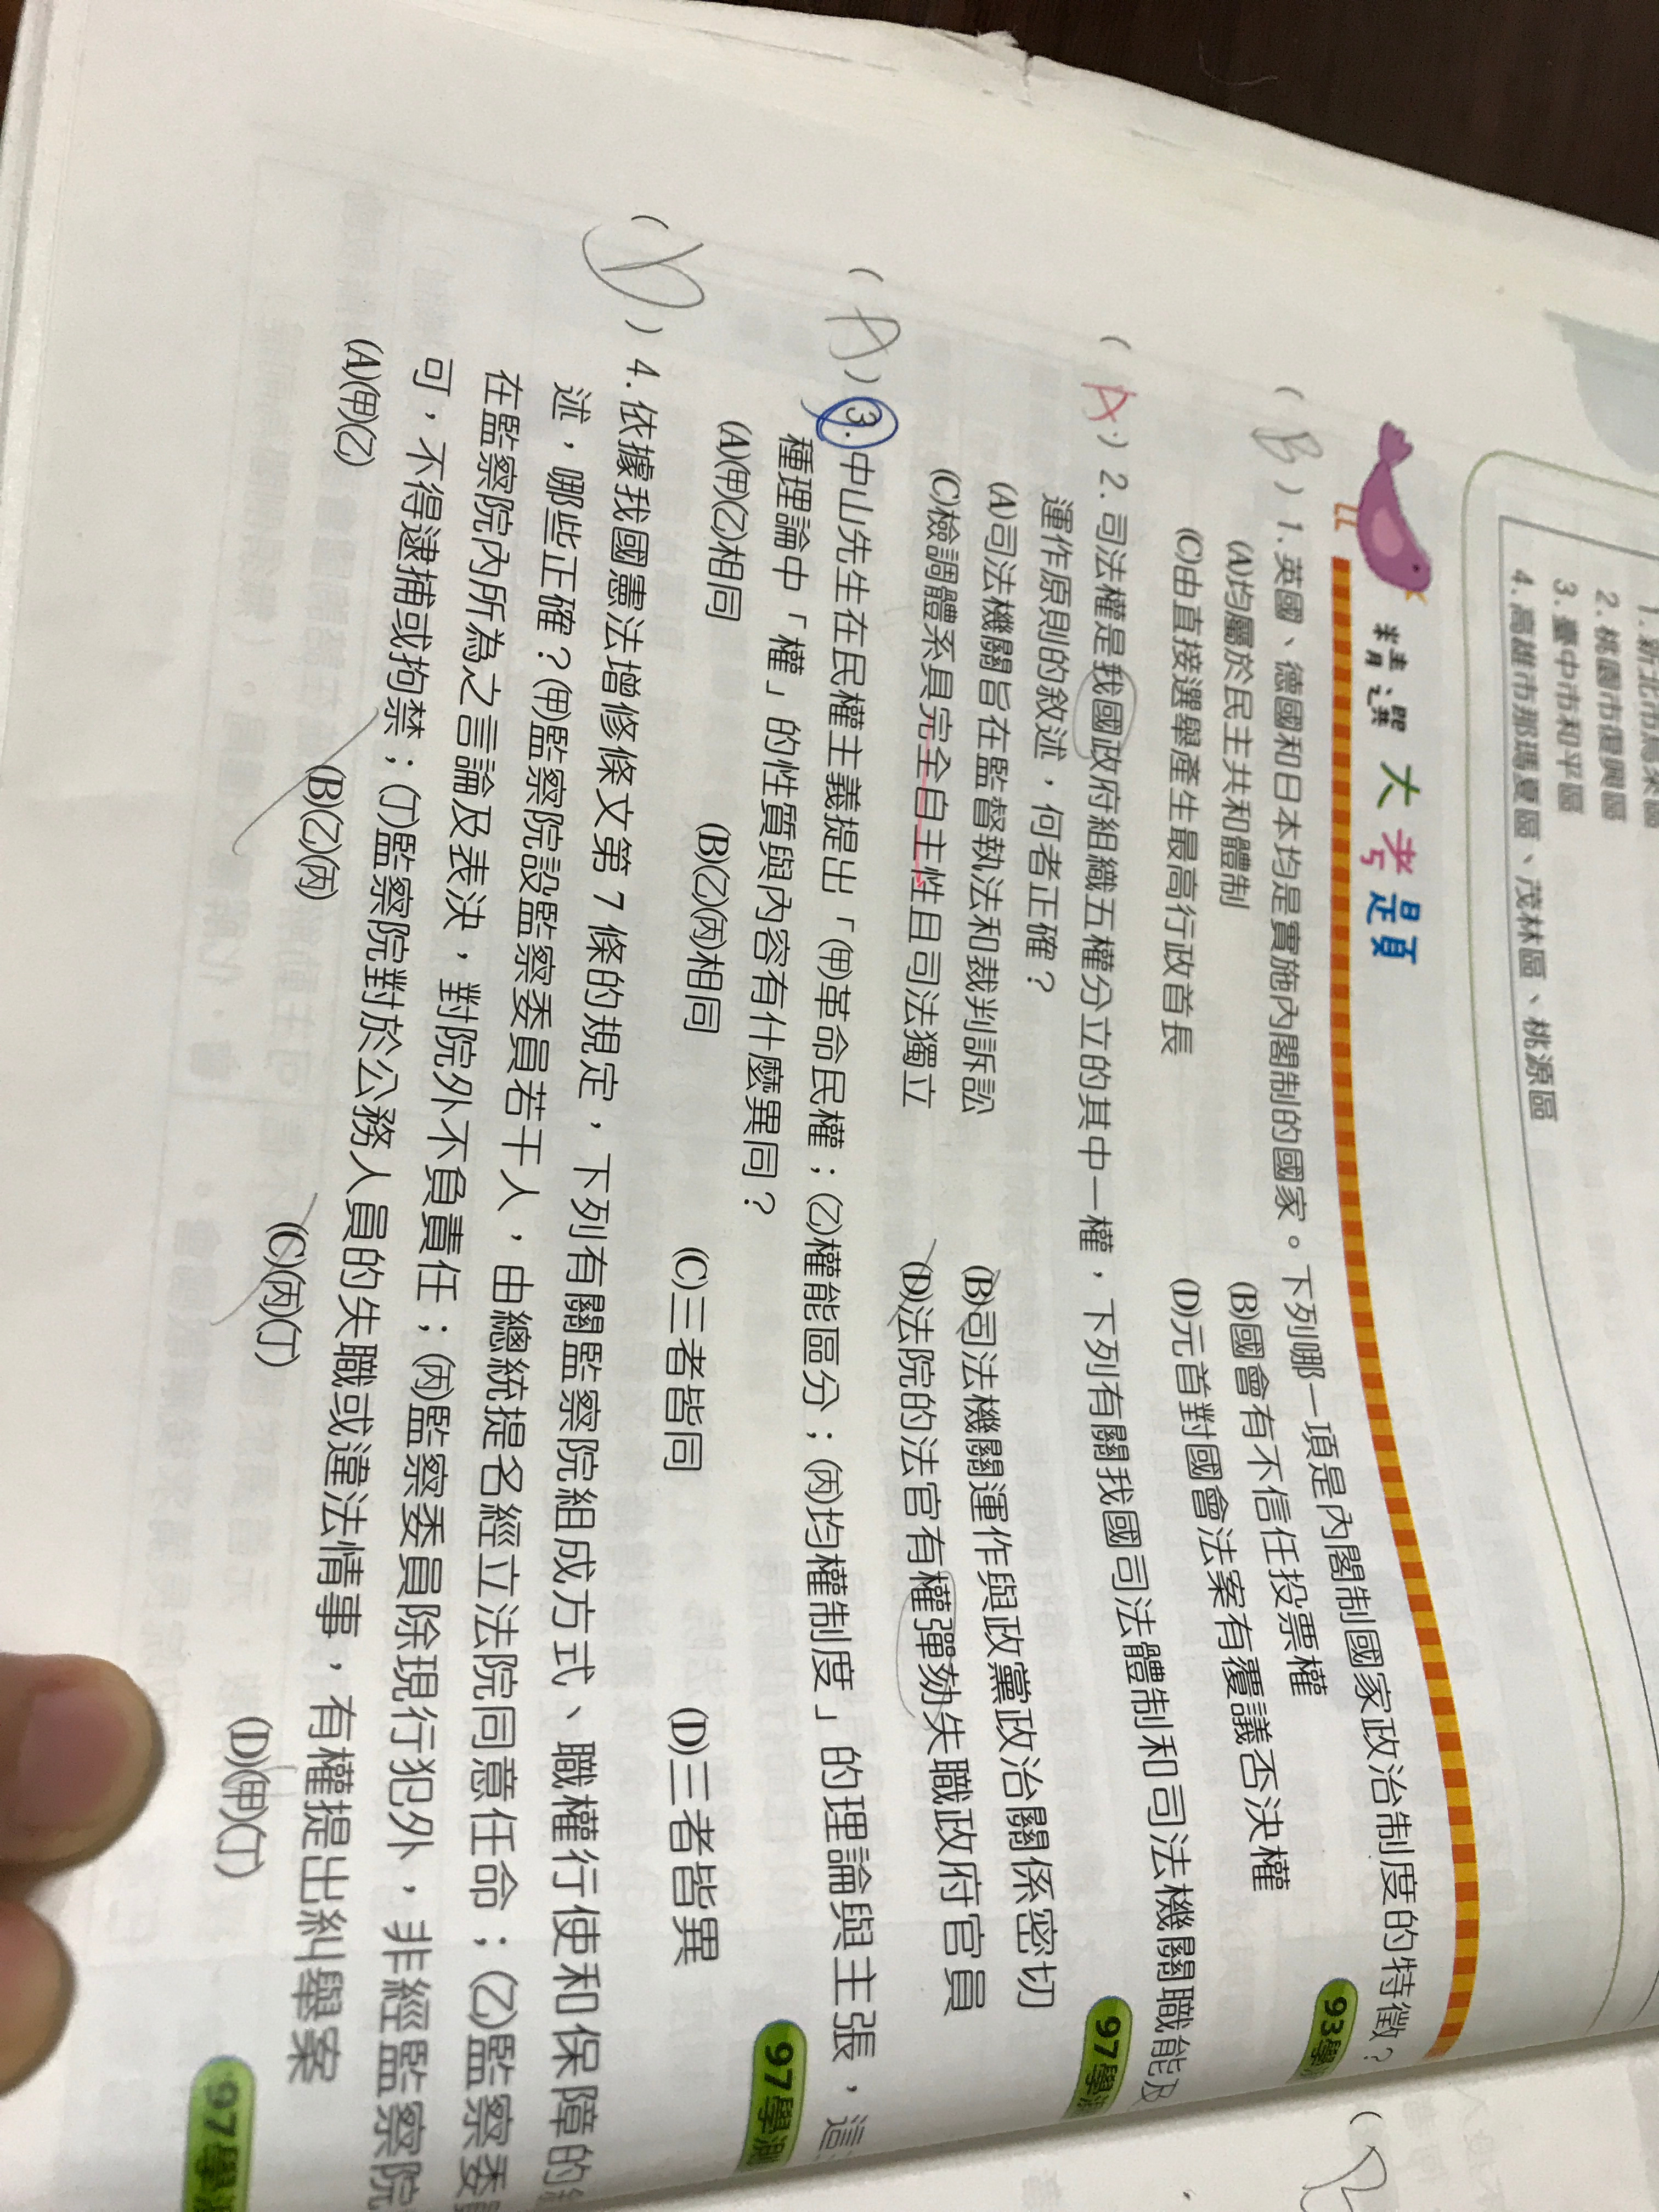 2.桃園市復興區
3.臺中市和平區
4.高雄市那瑪夏區、茂林區、桃源區
精選 大考題
(B)1.英國、德國和日本均是實施內閣制的國家。下列哪一項是內閣制國家政治制度的特徵?
(A)均屬於民主共和體制 (B)國會有不信任投票權
(C)由直接選舉產生最高行政首長 (D)元首對國會法案有覆議否決權 93學
(A)2.司法權是我國政府組織五權分立的其中一權,下列有關我國司法體制和司法機關職能及
運作原則的敘述,何者正確?
(A)司法機關旨在監督執法和裁判訴訟 (B)司法機關運作與政黨政治關係密切
(C)檢調體系具完全自主性且司法獨立 (D)法院的法官有權彈劾失職政府官員 97學測
(A)3.中山先生在民權主義提出「(甲)革命民權;(乙)權能區分;(丙)均權制度」的理論與主張,這
種理論中「權」的性質與內容有什麼異同?
(A)(甲)(乙)相同 (B)(乙)(丙)相同 (C)三者皆同 (D)三者皆異 97學測
(D)4.依據我國憲法增修條文第7條的規定,下列有關監察院組成方式、職權行使和保障的
述,哪些正確?(甲)監察院設監察委員若干人,由總統提名經立法院同意任命;(乙)監察委
在監察院內所為之言論及表決,對院外不負責任;(丙)監察委員除現行犯外,非經監察院
可,不得逮捕或拘禁;(丁)監察院對於公務人員的失職或違法情事,有權提出糾舉案
(A)(甲)(乙) (B)(乙)(丙) (C)(丙)(丁) (D)(甲)(丁) 97學